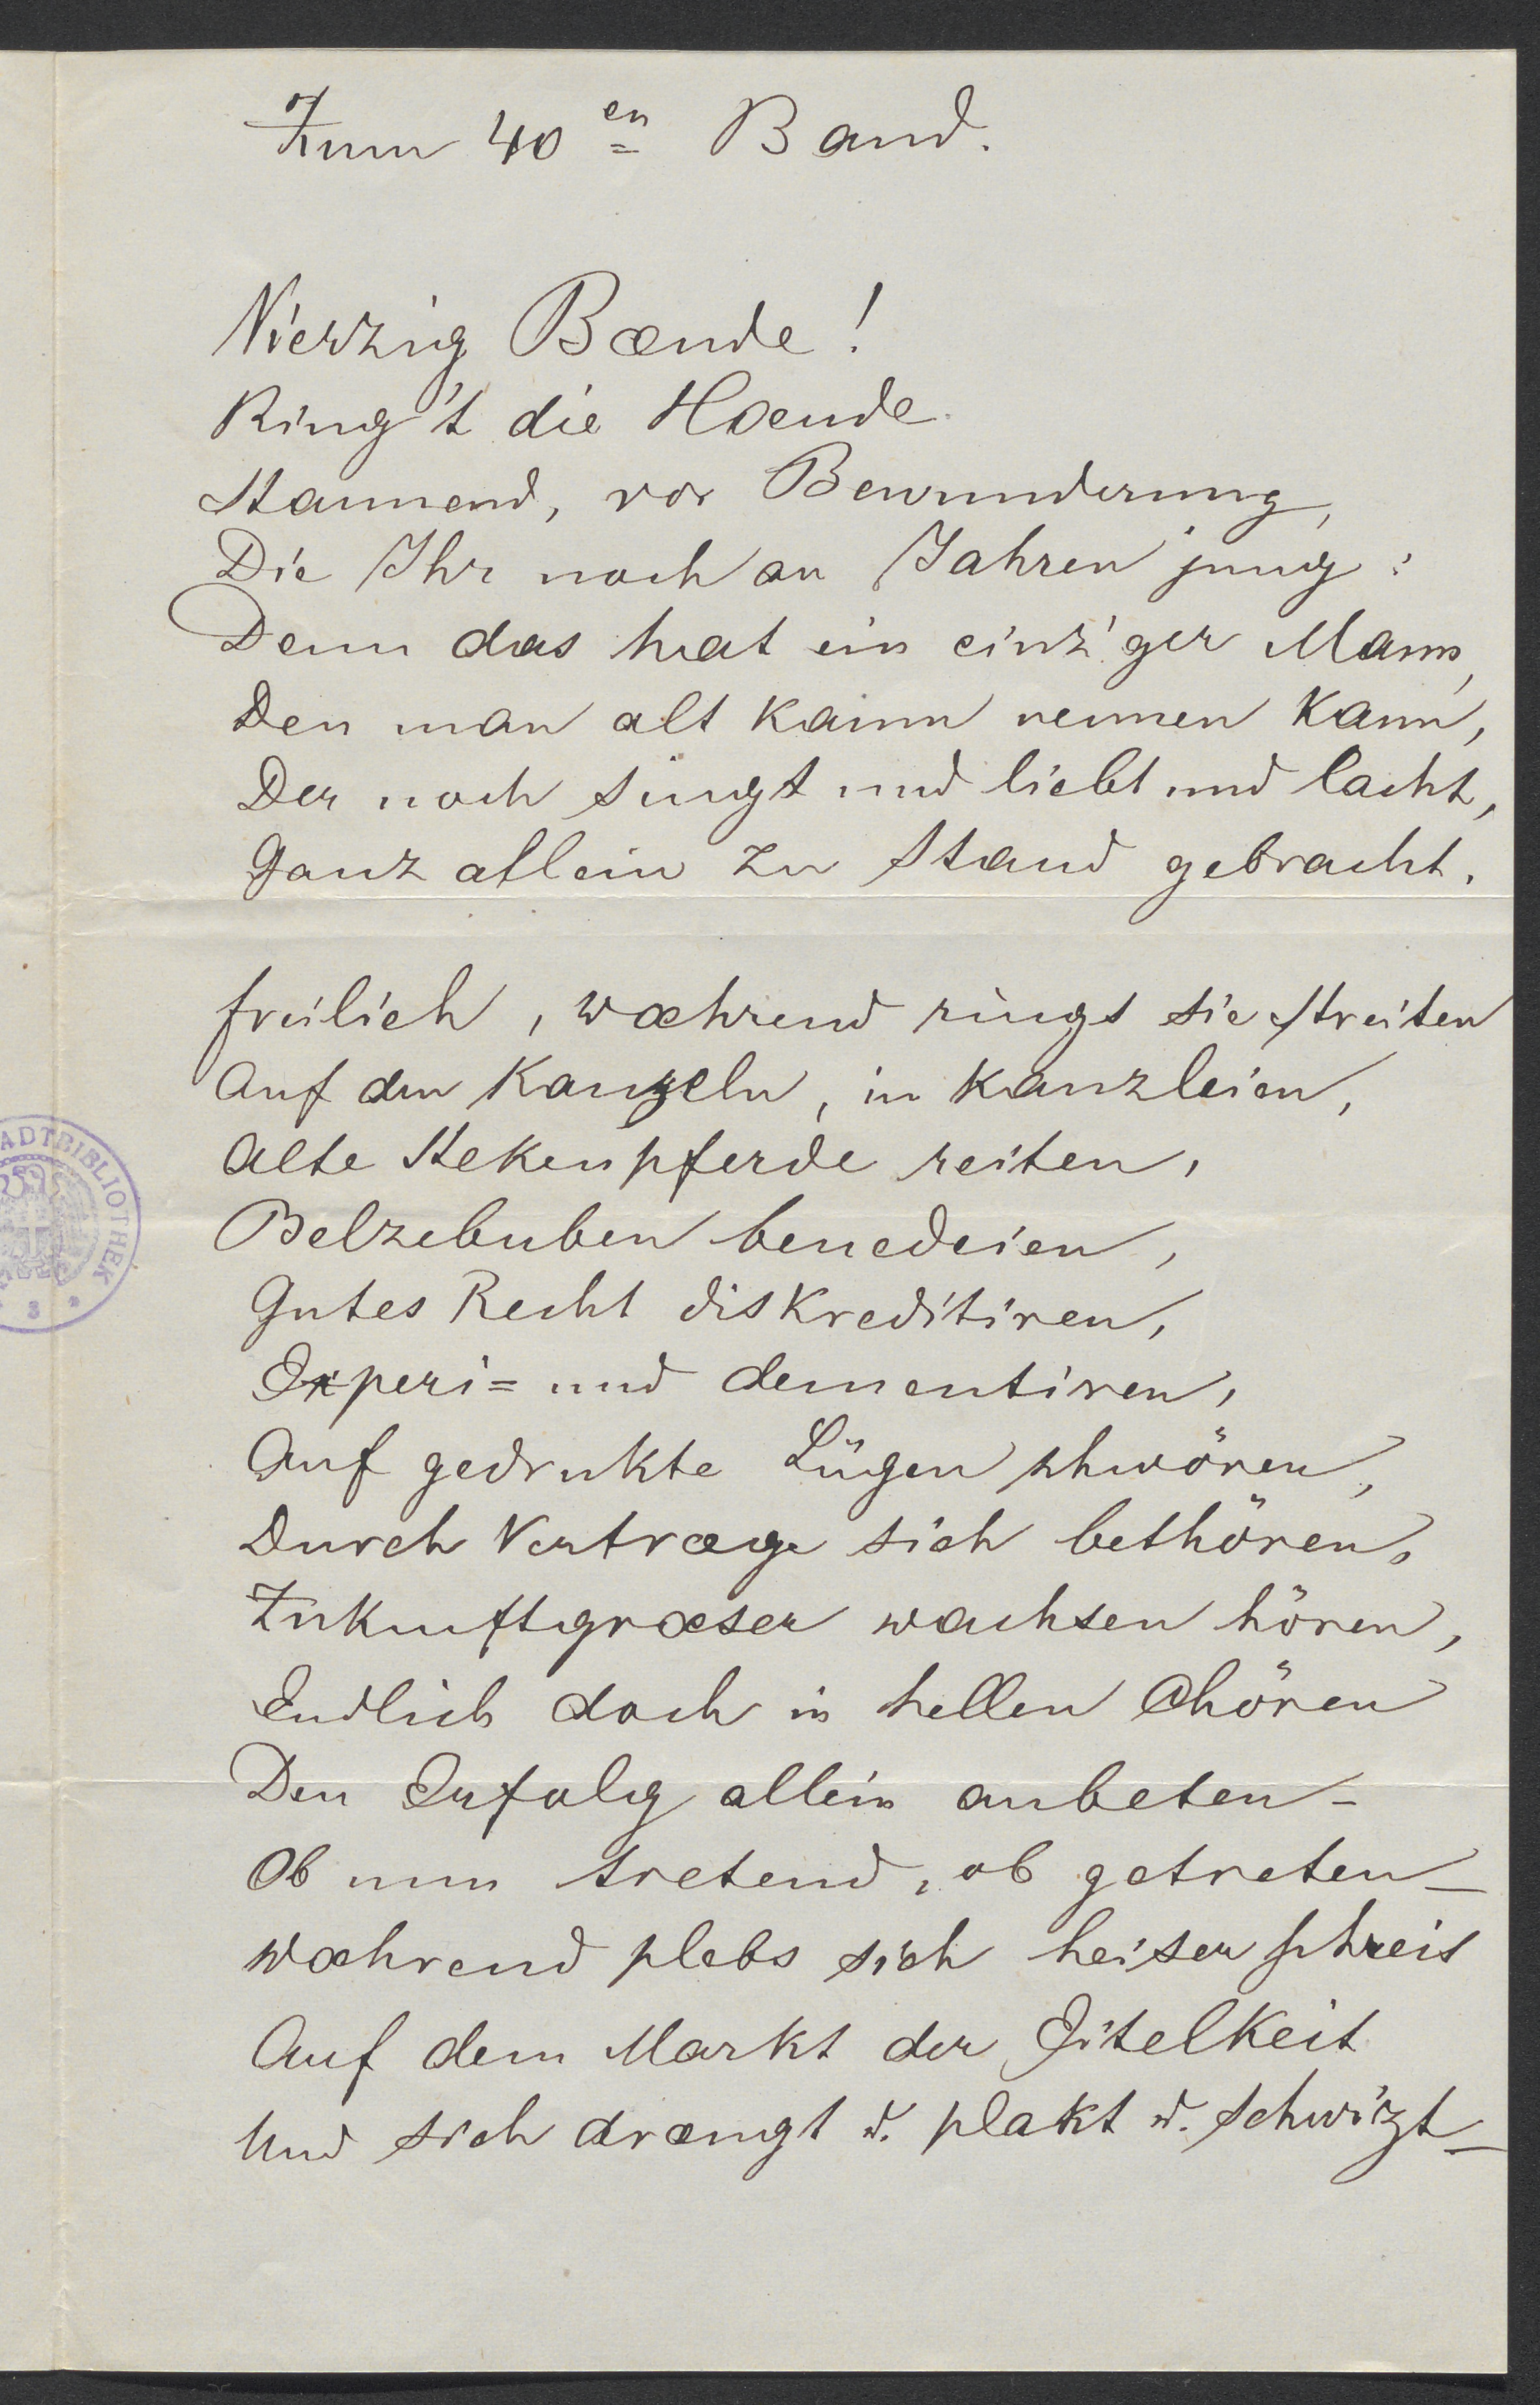 Zum 40en Band.
Vierzig Bænde!
Ring't die Hænde
Staunend, vor Bewunderung,
Die Ihr noch an Jahren jung:
Denn das hat ein einz'ger Mann,
Den man alt kaum nennen kann,
Der noch singt und liebt und lacht,
Ganz allein zu Stand gebracht.
freilich, wæhrend rings sie streiten
Auf den Kanzeln, in Kanzleien,
Alte Stekenpferde reiten,
Belzebuben benedeien,
Gutes Recht diskreditiren,
Experi= und dementiren,
Auf gedrukte Lügen schwören,
Durch Vertræge sich bethören,
Zukunftgræser wachsen hören,
Endlich doch in hellen Chören
Den Erfolg allein anbeten –
Ob nun tretend, ob getreten –
wæhrend plebs sich heiser schreit
Auf dem Markt der Eitelkeit
Und sich drængt u. plakt u. schwizt –
STADTBIBLIOTHEK